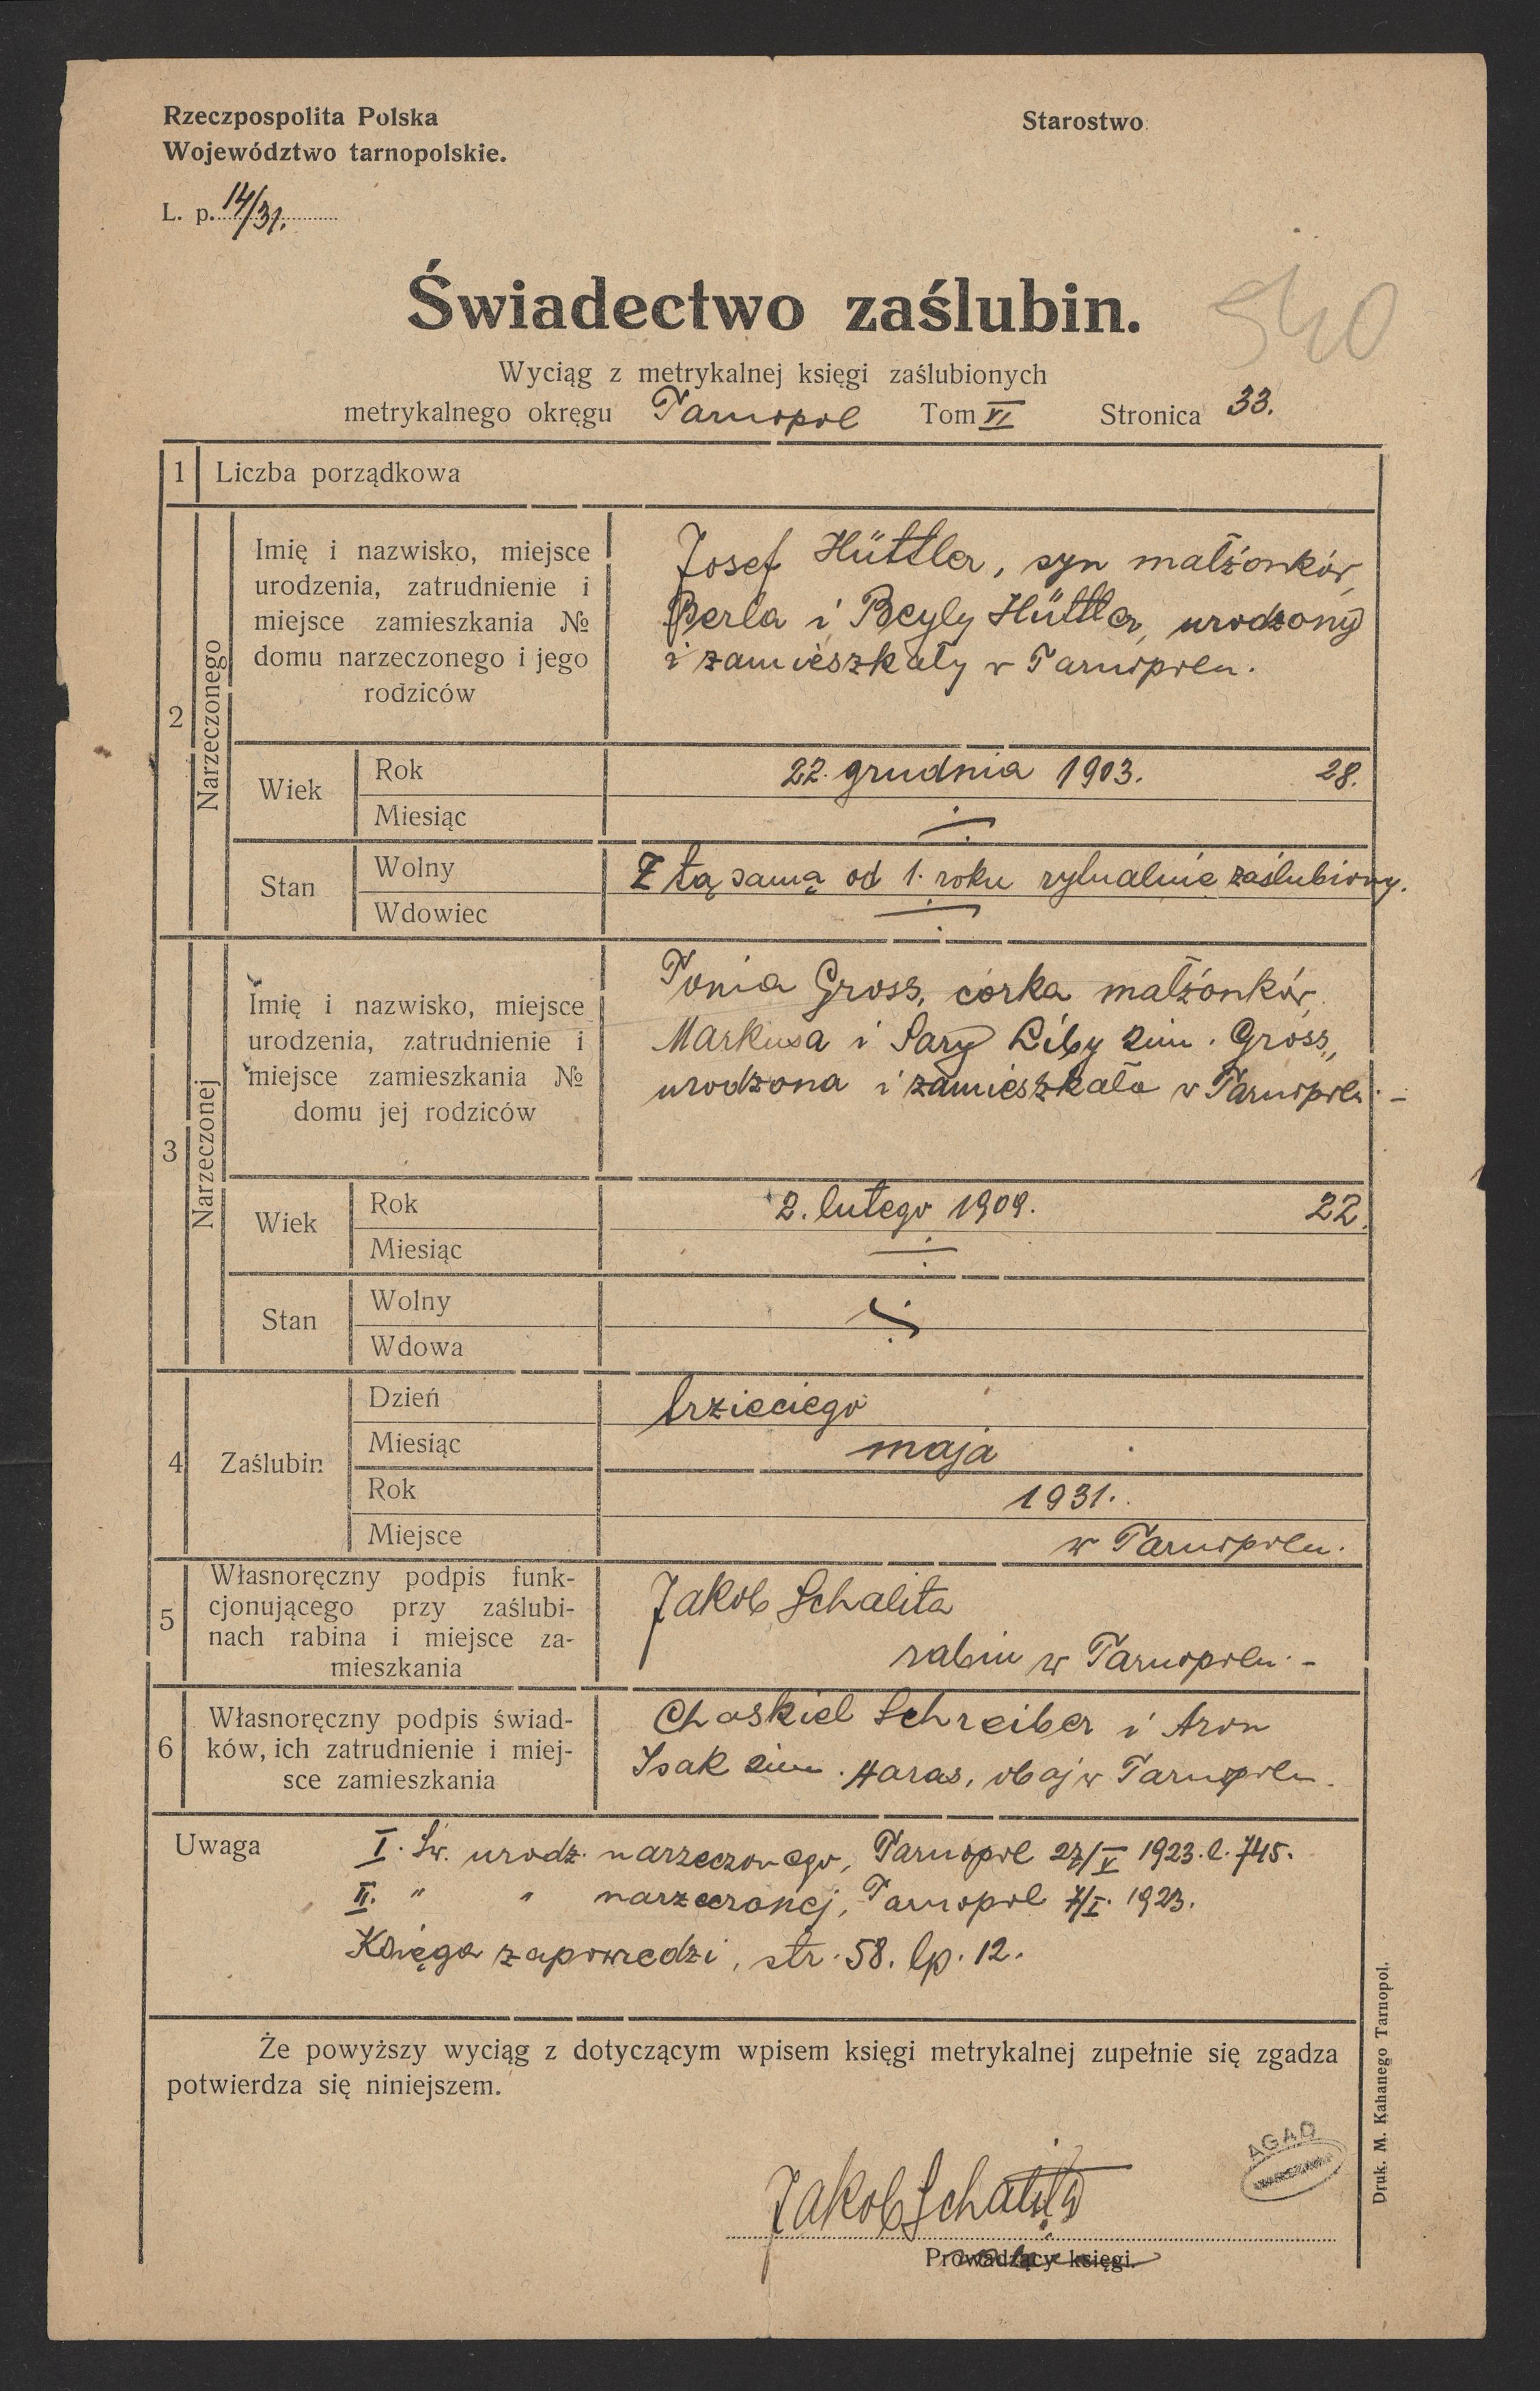 Rzeczpospolita Polska
Województwo tarnopolskie.
Starostwo
L. p. 14/31.
Świadectwo zaślubin.
540
Wyciąg z metrykalnej księgi zaślubionych
metrykalnego okręgu Tarnopol Tom VI Stronica 33.
1 Liczba porządkowa
2 Narzeczonego
Imię i nazwisko, miejsce
urodzenia, zatrudnienie i
miejsce zamieszkania №
domu narzeczonego i jego
rodziców
Josef Hüttler, syn małżonków
Berla i Beyly Hüttler, urodzony
i zamieszkały w Tarnopolu.
Wiek
Rok 22. grudnia 1903. 28.
Miesiąc
Stan
Wolny Z tą samą od 1. roku rytualnie zaślubiony.
Wdowiec
3 Narzeczonej
Imię i nazwisko, miejsce
urodzenia, zatrudnienie i
miejsce zamieszkania №
domu jej rodziców
Tonia Gross, córka małżonków
Markusa i Sary Liby 2im. Gross,
urodzona i zamieszkała w Tarnopolu. -
Wiek
Rok 2. lutego 1909. 22.
Miesiąc
Stan
Wolny
Wdowa
4 Zaślubin
Dzień trzieciego
Miesiąc maja
Rok 1931.
Miejsce w Tarnopolu.
5
Własnoręczny podpis funk-
cjonującego przy zaślubi-
nach rabina i miejsce za-
mieszkania
Jakob Schalita
rabin w Tarnopolu. -
6
Własnoręczny podpis świad-
ków, ich zatrudnienie i miej-
sce zamieszkania
Chaskiel Schreiber i Aron
Isak 2im. Haras, obaj w Tarnopolu.
Uwaga
I. Św. urodz. narzeczonego, Tarnopol 27/V 1923. l. 745.
II. " " narzeczonej, Tarnopol 7/I. 1923.
Księga zapowiedzi, str. 58. lp. 12.
Że powyższy wyciąg z dotyczącym wpisem księgi metrykalnej zupełnie się zgadza
potwierdza się niniejszem.
AGAD
WARSZAWA
Jakob Schalita
Prowadzący księgi.
Druk. M. Kahanego Tarnopol.